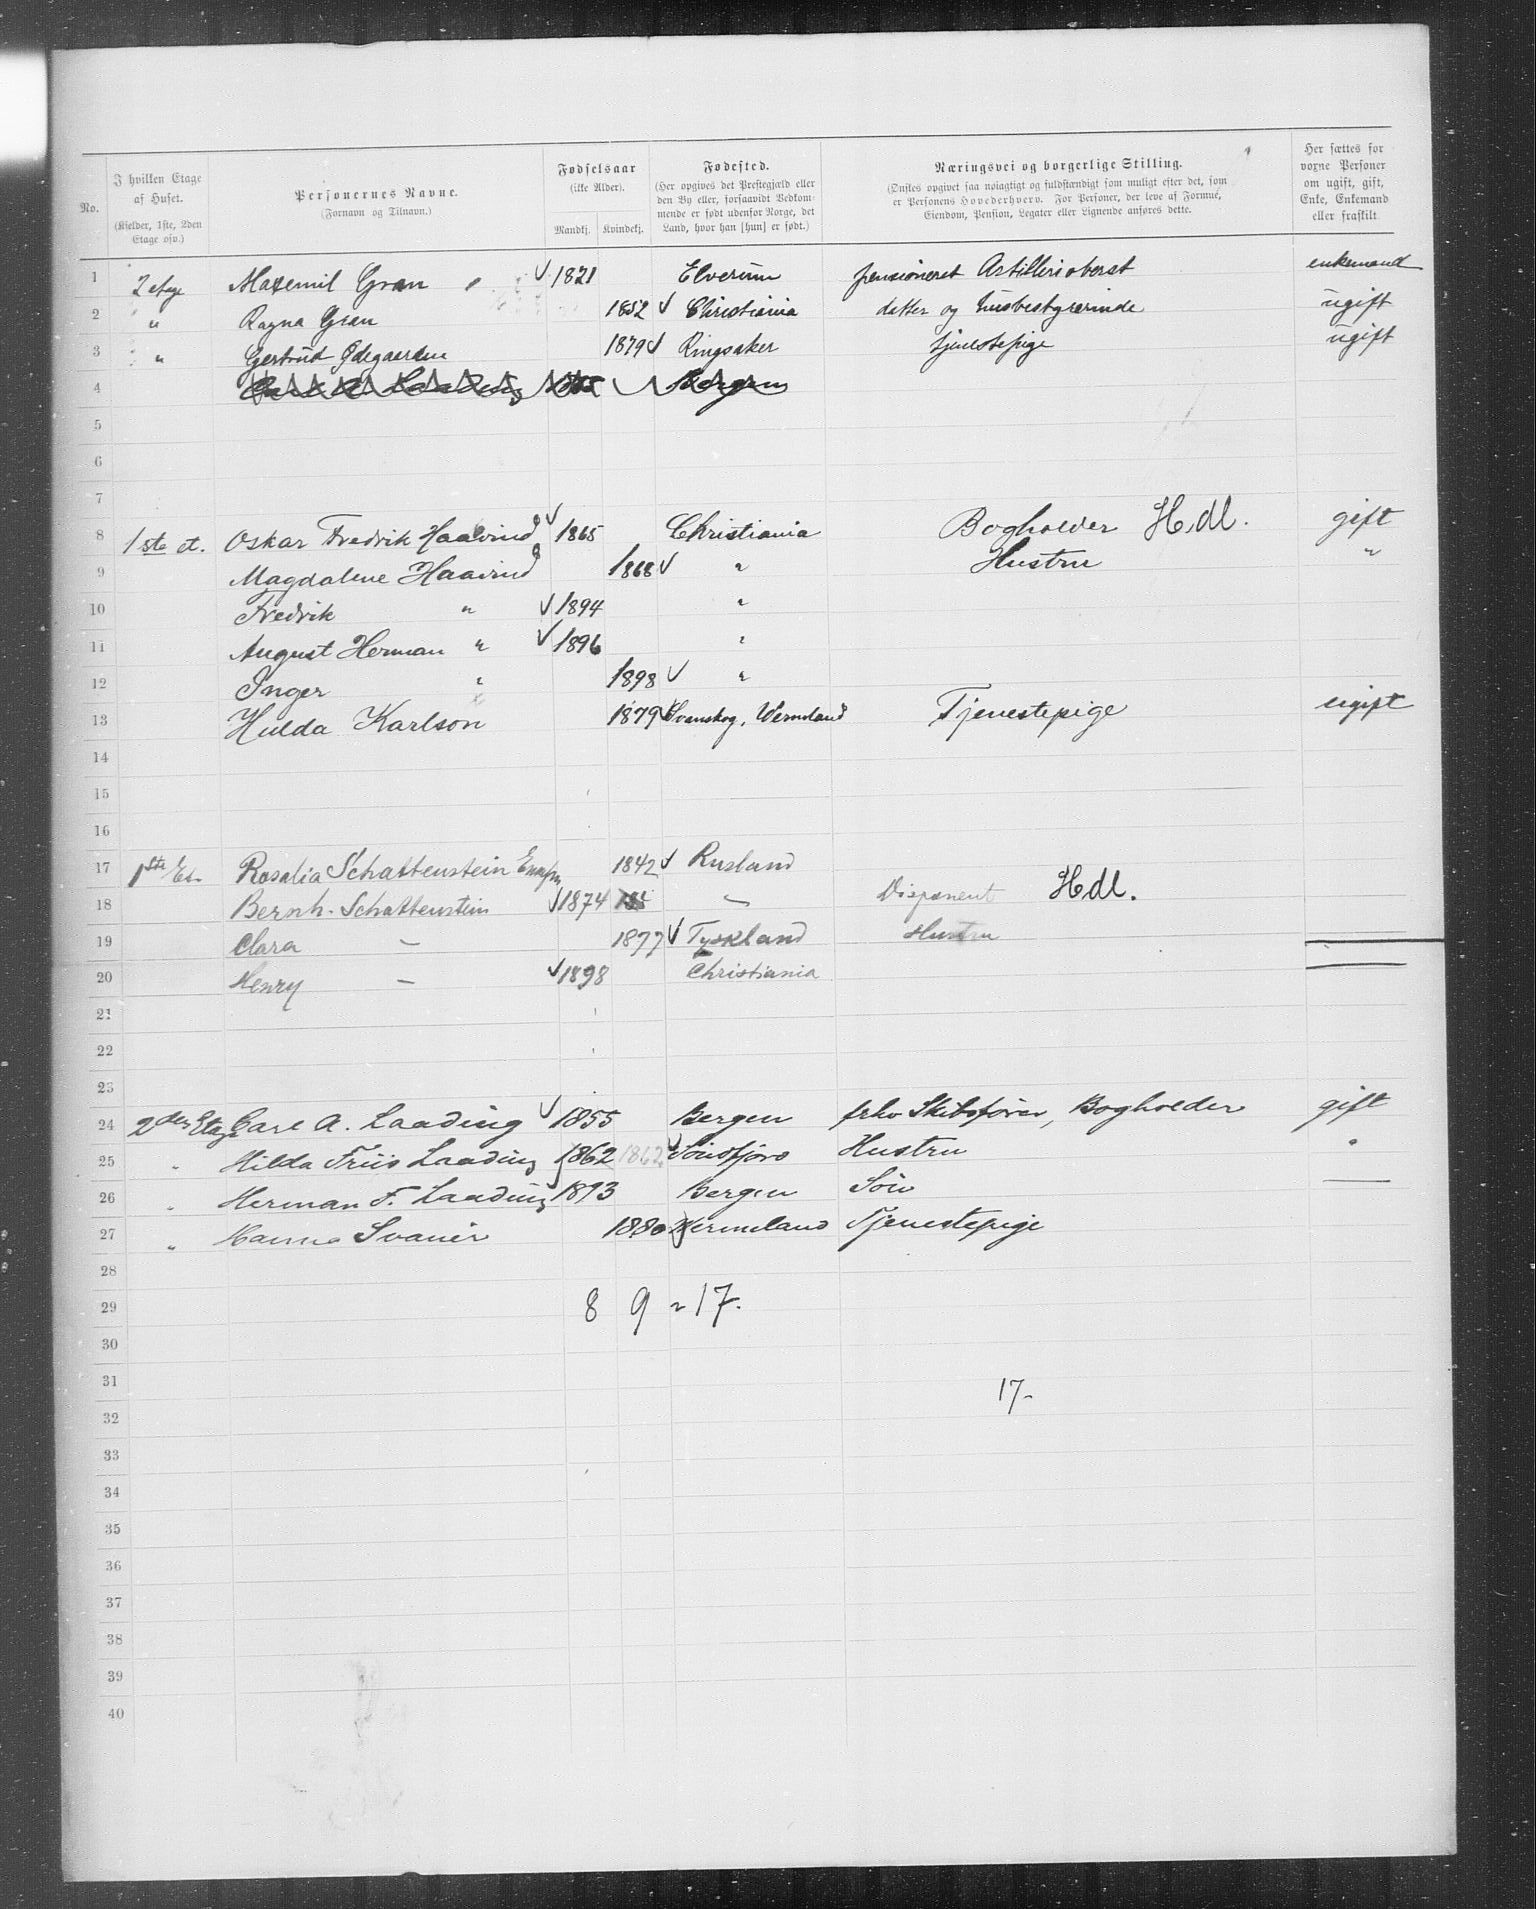 No.
I hvilken Etage af Huset.
(Kjelder, 1ste, 2den Etage osv.)
Personernes Navne.
(Fornavn og Tilnavn.)
Fødselsaar
(ikke Alder).
Mandkj. Kvindekj.
Fødested.
(Her opgives det Prestegjæld eller den By eller, forsaavidt Vedkommende er født udenfor Norge, det Land, hvor han [hun] er født.)
Næringsvei og borgerlige Stilling.
(Ønskes opgivet saa nøiagtigt og fuldstændigt som muligt efter det, som er Personens Hovederhverv. For Personer, der leve af Formue, Eiendom, Pension, Legater eller Lignende anføres dette.
Her sættes for voxne Personer om ugift, gift, Enke, Enkemand eller fraskilt
1 2 etage Maxemil Gran 1821 Elverum pensioneret Artillerioberst enkemand
2 " Ragna Gran 1852 Christiania datter og husbestyrerinde ugift
3 " Gertrud Ødegaarden 1879 Ringsaker tjenestepige ugift
4 Bergen
5
6
7
8 1ste et. Oskar Fredrik Haavind 1865 Christiania Bogholder Hdl. gift
9 Magdalene Haavind 1868 " Hustru "
10 Fredrik " 1894 "
11 August Herman " 1896 "
12 Inger " 1898 "
13 Hulda Karlson 1879 Svanskog, Wermland Tjenestepige ugift
14
15
16
17 1ste Et. Rosalia Schattenstein 1842 Rusland
18 Bernh. Schattenstein 1874 — Disponent Hdl.
19 Clara — 1877 Tyskland Hustru
20 Henry — 1898 Christiania
21
22
23
24 2den Etage Carl A. Laading 1855 Bergen frhv Skibsfører, Bogholder gift
25 " Hilda Friis Laading 1862 1862 Søndfjord Hustru "
26 " Herman F. Laading 1893 Bergen Søn —
27 " Hanna Svanér 1880 Wermeland Tjenestepige
28
29 8 9 = 17.
30
31 17-
32
33
34
35
36
37
38
39
40